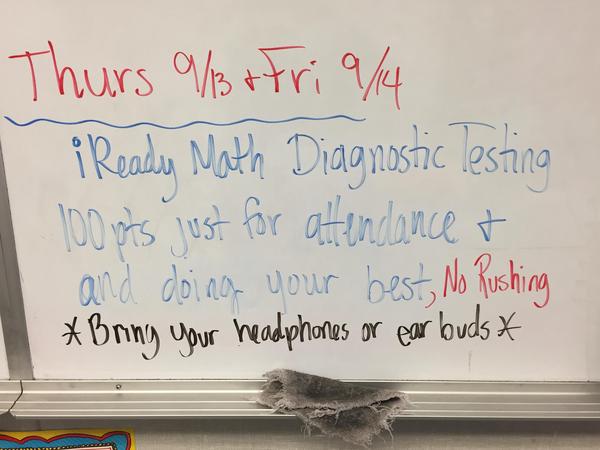 Thurs 9/13 + Fri 9/14
iReady Math Diagnostic Testing
100 pts just for attendance +
and doing your best, No Rushing
*Bring your headphones or ear buds*